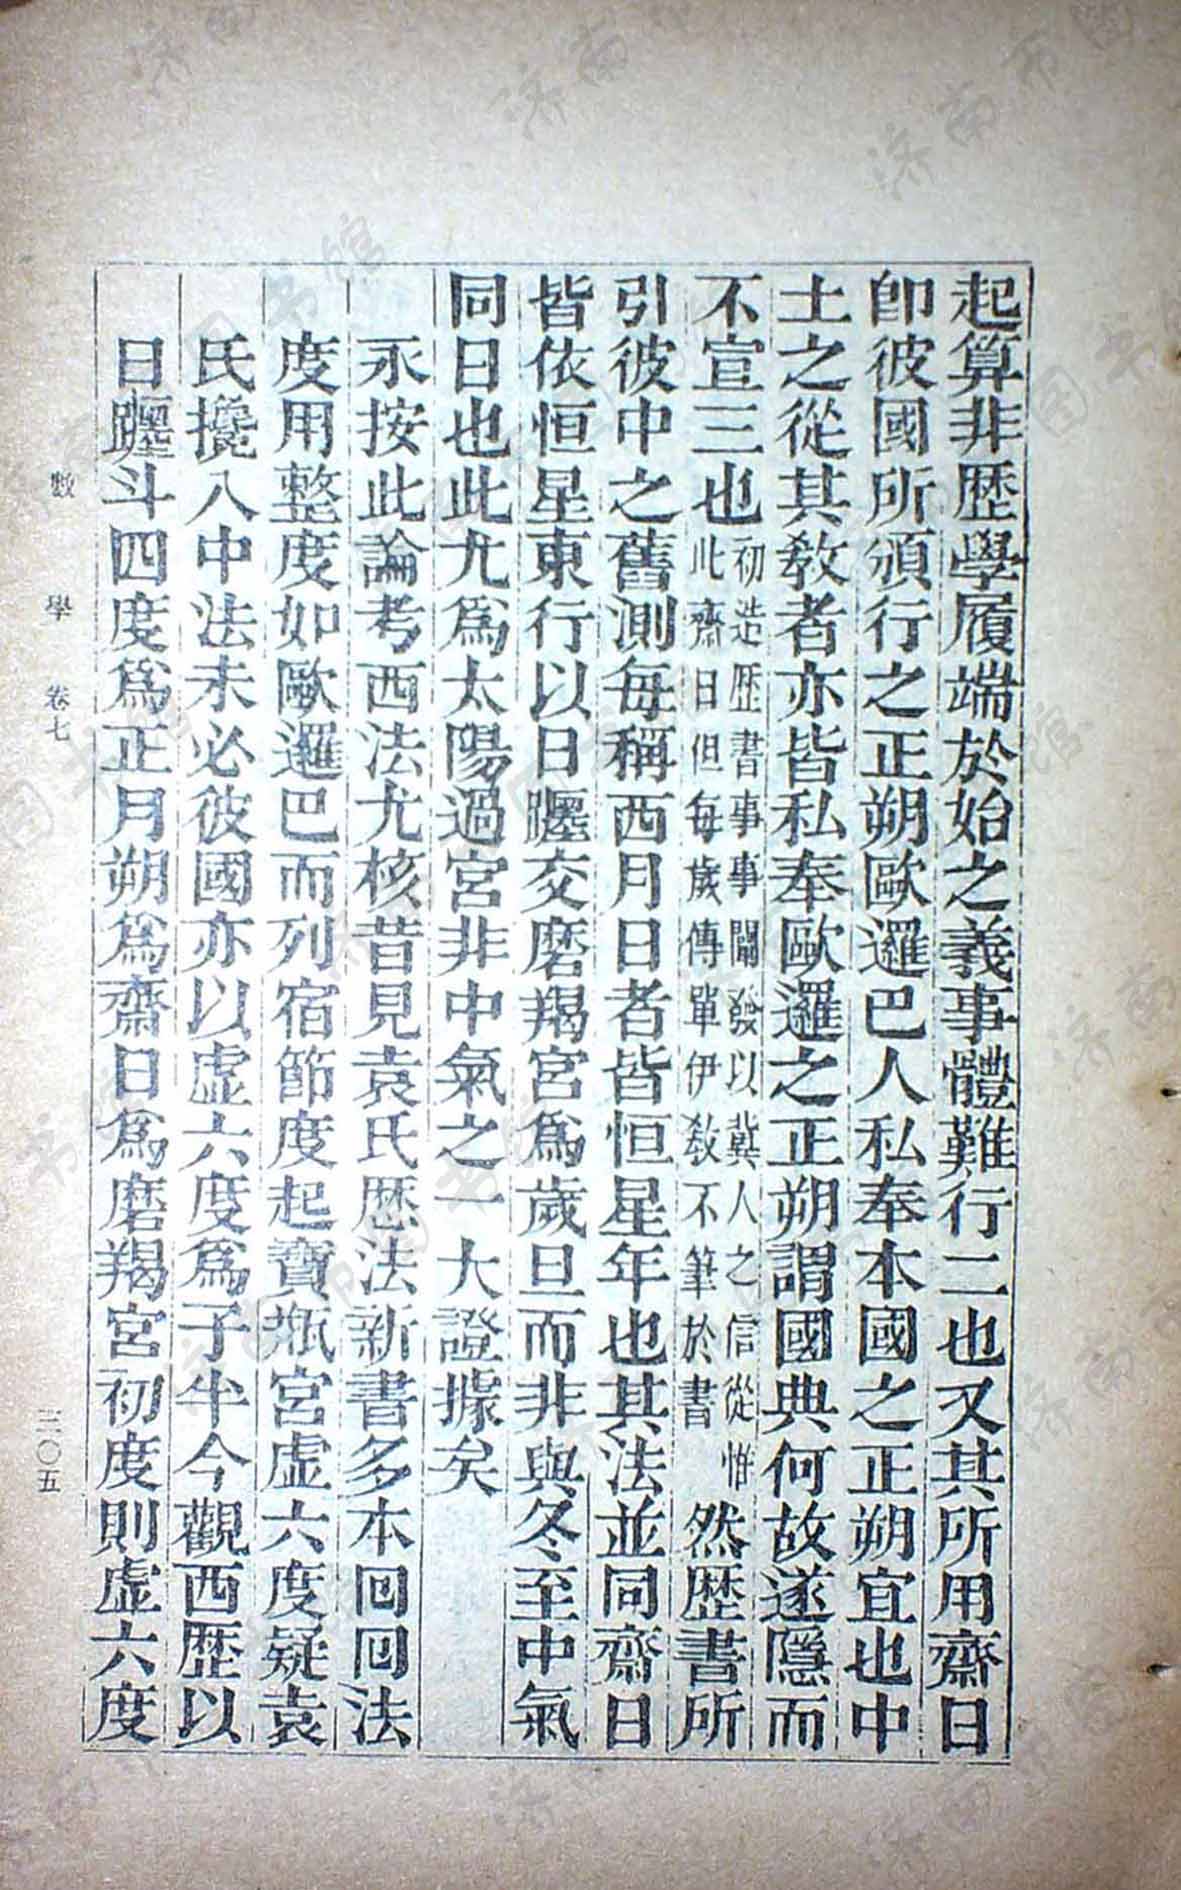 起算非歴學履端於始之義事體難行二也又其所用齋日
卽彼國所頒行之正朔歐邏巴人私奉本國之正朔宜也中
土之從其敎者亦皆私奉歐邏之正朔謂國典何故遂隱而
不宣三也初造歴書事事闡發以冀人之信從惟此齋日但每歲傳單伊敎不筆於書然歴書所
引彼中之舊測每稱西月日者皆恒星年也其法並同齋日
皆依恒星東行以日躔交磨羯宮爲歲旦而非與冬至中氣
同日也此尤爲太陽過宮非中氣之一大證據矣
永按此論考西法尤核昔見袁氏歴法新書多本回回法
度用整度如歐邏巴而列宿節度起寶甁宮虛六度疑袁
氏攙入中法未必彼國亦以虛六度爲子半今觀西歴以
日躔斗四度爲正月朔爲齋日爲磨羯宮初度則虛六度
數學 卷七
二〇五
济南市图书馆